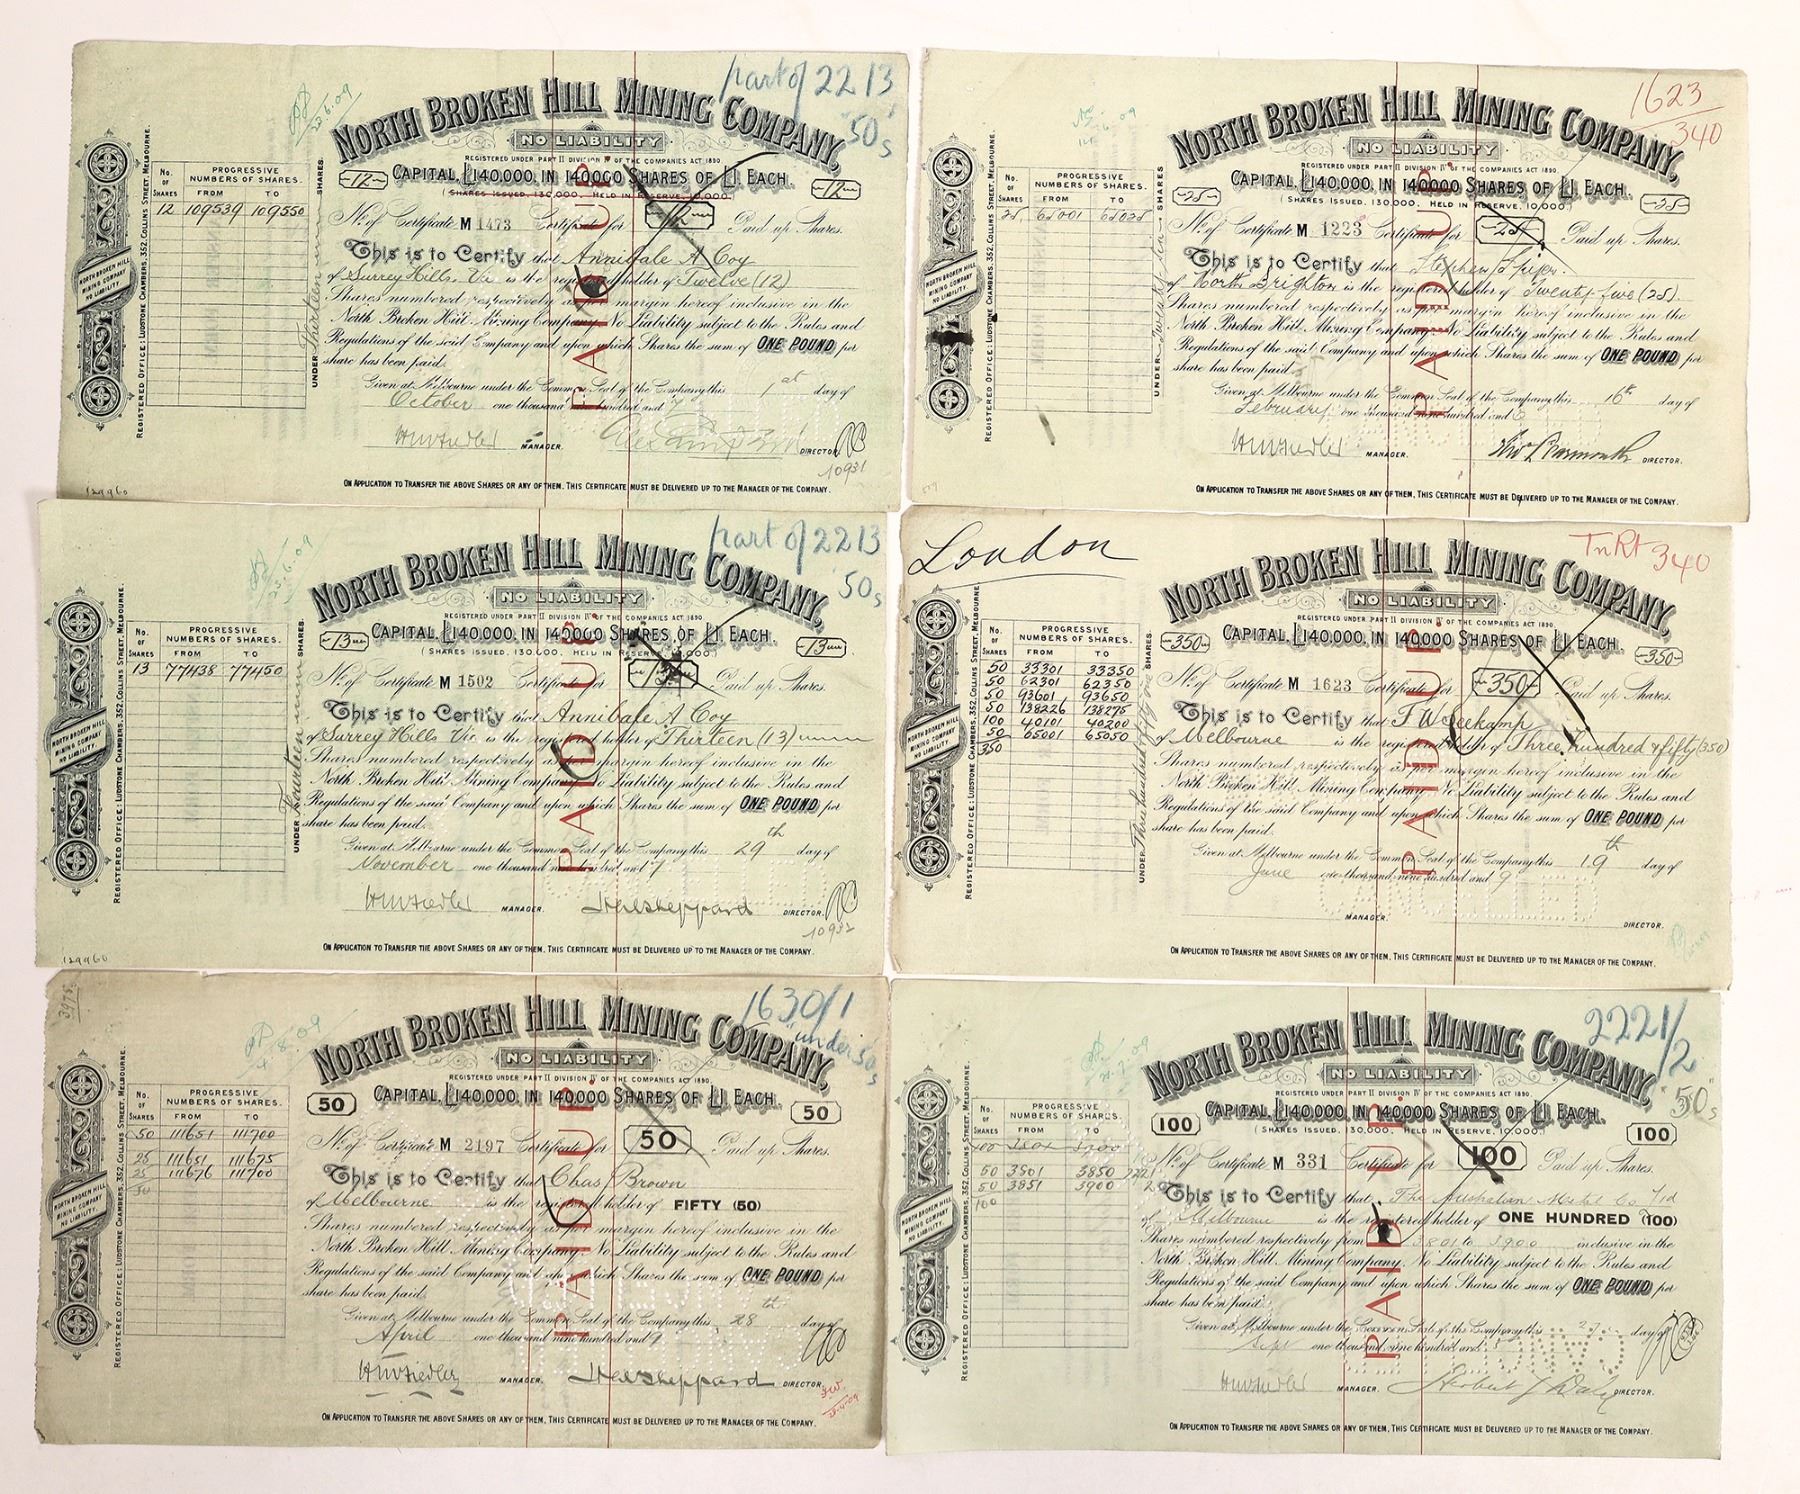 part of 2213
"50"s
22.6.09
NORTH BROKEN HILL MINING COMPANY,
NO LIABILITY
REGISTERED UNDER PART II DIVISION IV OF THE COMPANIES ACT 1890
-12- CAPITAL, £140,000, IN 140000 SHARES OF £1 EACH. -12-
(SHARES ISSUED, 130,000. HELD IN RESERVE, 10,000.)
No. of Certificate M 1473 Certificate for 12 Paid up Shares.
This is to Certify that Annibale A Coy
of Surrey Hills, Vic is the registered holder of Twelve (12)
Shares numbered respectively as per margin hereof inclusive in the
North Broken Hill Mining Company No Liability subject to the Rules and
Regulations of the said Company and upon which Shares the sum of ONE POUND per
share has been paid.
Given at Melbourne under the Common Seal of the Company this 1st day of
October one thousand nine hundred and 7
MANAGER. DIRECTOR.
10931
ON APPLICATION TO TRANSFER THE ABOVE SHARES OR ANY OF THEM, THIS CERTIFICATE MUST BE DELIVERED UP TO THE MANAGER OF THE COMPANY.
129960
No. OF SHARES PROGRESSIVE NUMBERS OF SHARES. FROM TO
12 109539 109550
NORTH BROKEN HILL MINING COMPANY NO LIABILITY.
REGISTERED OFFICE: LUDSTONE CHAMBERS, 352, COLLINS STREET, MELBOURNE.
UNDER Thirteen SHARES.
PAID UP.
1623
340
NORTH BROKEN HILL MINING COMPANY,
NO LIABILITY
REGISTERED UNDER PART II DIVISION IV OF THE COMPANIES ACT 1890
-25- CAPITAL, £140,000, IN 140000 SHARES OF £1 EACH. -25-
(SHARES ISSUED, 130,000. HELD IN RESERVE, 10,000.)
No. of Certificate M 1223 Certificate for -25- Paid up Shares.
This is to Certify that Stephen
of North Brighton is the registered holder of Twenty five (25)
Shares numbered respectively as per margin hereof inclusive in the
North Broken Hill Mining Company No Liability subject to the Rules and
Regulations of the said Company and upon which Shares the sum of ONE POUND per
share has been paid.
Given at Melbourne under the Common Seal of the Company this 16th day of
February one thousand nine hundred and 6
MANAGER. DIRECTOR.
ON APPLICATION TO TRANSFER THE ABOVE SHARES OR ANY OF THEM, THIS CERTIFICATE MUST BE DELIVERED UP TO THE MANAGER OF THE COMPANY.
No. OF SHARES PROGRESSIVE NUMBERS OF SHARES. FROM TO
25 65001 65025
NORTH BROKEN HILL MINING COMPANY NO LIABILITY.
REGISTERED OFFICE: LUDSTONE CHAMBERS, 352, COLLINS STREET, MELBOURNE.
UNDER Twenty six SHARES
PAID UP.
CANCELLED
part of 2213
50s
22.6.09
NORTH BROKEN HILL MINING COMPANY,
NO LIABILITY
REGISTERED UNDER PART II DIVISION IV OF THE COMPANIES ACT 1890
-13- CAPITAL, £140,000, IN 140000 SHARES, OF £1 EACH. -13-
(SHARES ISSUED, 130,000. HELD IN RESERVE, 10,000.)
No. of Certificate M 1502 Certificate for 13 Paid up Shares.
This is to Certify that Annibale A Coy
of Surrey Hills Vic is the registered holder of Thirteen (13)
Shares numbered respectively as per margin hereof inclusive in the
North Broken Hill Mining Company No Liability subject to the Rules and
Regulations of the said Company and upon which Shares the sum of ONE POUND per
share has been paid.
Given at Melbourne under the Common Seal of the Company this 29th day of
November one thousand nine hundred and 7
HMWFiedler MANAGER. Sheppard DIRECTOR.
10932
ON APPLICATION TO TRANSFER THE ABOVE SHARES OR ANY OF THEM, THIS CERTIFICATE MUST BE DELIVERED UP TO THE MANAGER OF THE COMPANY.
129960
No. OF SHARES PROGRESSIVE NUMBERS OF SHARES. FROM TO
13 77438 77450
NORTH BROKEN HILL MINING COMPANY NO LIABILITY.
REGISTERED OFFICE: LUDSTONE CHAMBERS, 352, COLLINS STREET, MELBOURNE.
UNDER Fourteen SHARES.
PAID UP.
London
340
NORTH BROKEN HILL MINING COMPANY,
NO LIABILITY
REGISTERED UNDER PART II DIVISION IV OF THE COMPANIES ACT 1890
-350- CAPITAL, £140,000, IN 140000 SHARES OF £1 EACH. -350-
No. of Certificate M 1623 Certificate for -350- Paid up Shares.
This is to Certify that F W Seekamp
of Melbourne is the registered holder of Three hundred & fifty (350)
Shares numbered respectively as per margin hereof inclusive in the
North Broken Hill Mining Company No Liability subject to the Rules and
Regulations of the said Company and upon which Shares the sum of ONE POUND per
share has been paid.
Given at Melbourne under the Common Seal of the Company this 19th day of
June one thousand nine hundred and 9
MANAGER. DIRECTOR.
ON APPLICATION TO TRANSFER THE ABOVE SHARES OR ANY OF THEM, THIS CERTIFICATE MUST BE DELIVERED UP TO THE MANAGER OF THE COMPANY.
No. OF SHARES PROGRESSIVE NUMBERS OF SHARES. FROM TO
50 33301 33350
50 62301 62350
50 93601 93650
50 138226 138275
100 40101 40200
50 65001 65050
350
NORTH BROKEN HILL MINING COMPANY NO LIABILITY.
REGISTERED OFFICE: LUDSTONE CHAMBERS, 352, COLLINS STREET, MELBOURNE.
UNDER Three hundred & fifty one SHARES.
PAID UP.
CANCELLED
3975
1630/1
"under 50"s
4.8.09
NORTH BROKEN HILL MINING COMPANY,
NO LIABILITY
REGISTERED UNDER PART II DIVISION IV OF THE COMPANIES ACT 1890.
50 CAPITAL, £140,000, IN 140000 SHARES OF £1 EACH. 50
No. of Certificate M 2197 Certificate for 50 Paid up Shares.
This is to Certify that Chas Brown
of Melbourne is the registered holder of FIFTY (50)
Shares numbered respectively as per margin hereof inclusive in the
North Broken Hill Mining Company No Liability subject to the Rules and
Regulations of the said Company and upon which Shares the sum of ONE POUND per
share has been paid.
Given at Melbourne under the Common Seal of the Company this 28th day of
April one thousand nine hundred and 9
HMWFiedler MANAGER. Sheppard DIRECTOR.
ON APPLICATION TO TRANSFER THE ABOVE SHARES OR ANY OF THEM, THIS CERTIFICATE MUST BE DELIVERED UP TO THE MANAGER OF THE COMPANY.
No. OF SHARES PROGRESSIVE NUMBERS OF SHARES. FROM TO
50 111651 111700
25 111651 111675
25 111676 111700
50
NORTH BROKEN HILL MINING COMPANY NO LIABILITY.
REGISTERED OFFICE: LUDSTONE CHAMBERS, 352, COLLINS STREET, MELBOURNE.
PAID UP.
2221/2
"50"s
NORTH BROKEN HILL MINING COMPANY,
NO LIABILITY
REGISTERED UNDER PART II DIVISION IV OF THE COMPANIES ACT 1890
100 CAPITAL, £140,000, IN 140000 SHARES OF £1 EACH. 100
(SHARES ISSUED, 130,000. HELD IN RESERVE, 10,000.)
No. of Certificate M 331 Certificate for 100 Paid up Shares.
This is to Certify that The Australian Metal Co Ltd
of Melbourne is the registered holder of ONE HUNDRED (100)
Shares numbered respectively from 3801 to 3900 inclusive in the
North Broken Hill Mining Company, No Liability subject to the Rules and
Regulations of the said Company and upon which Shares the sum of ONE POUND per
share has been paid.
Given at Melbourne under the Common Seal of the Company this 27 day of
Sept one thousand nine hundred and 5
MANAGER. Herbert J Daly DIRECTOR.
ON APPLICATION TO TRANSFER THE ABOVE SHARES OR ANY OF THEM, THIS CERTIFICATE MUST BE DELIVERED UP TO THE MANAGER OF THE COMPANY.
No. OF SHARES PROGRESSIVE NUMBERS OF SHARES. FROM TO
100 3801 3900
50 3801 3850 2221
50 3851 3900 2
100
NORTH BROKEN HILL MINING COMPANY NO LIABILITY.
REGISTERED OFFICE: LUDSTONE CHAMBERS, 352, COLLINS STREET, MELBOURNE.
PAID UP.
CANCELLED